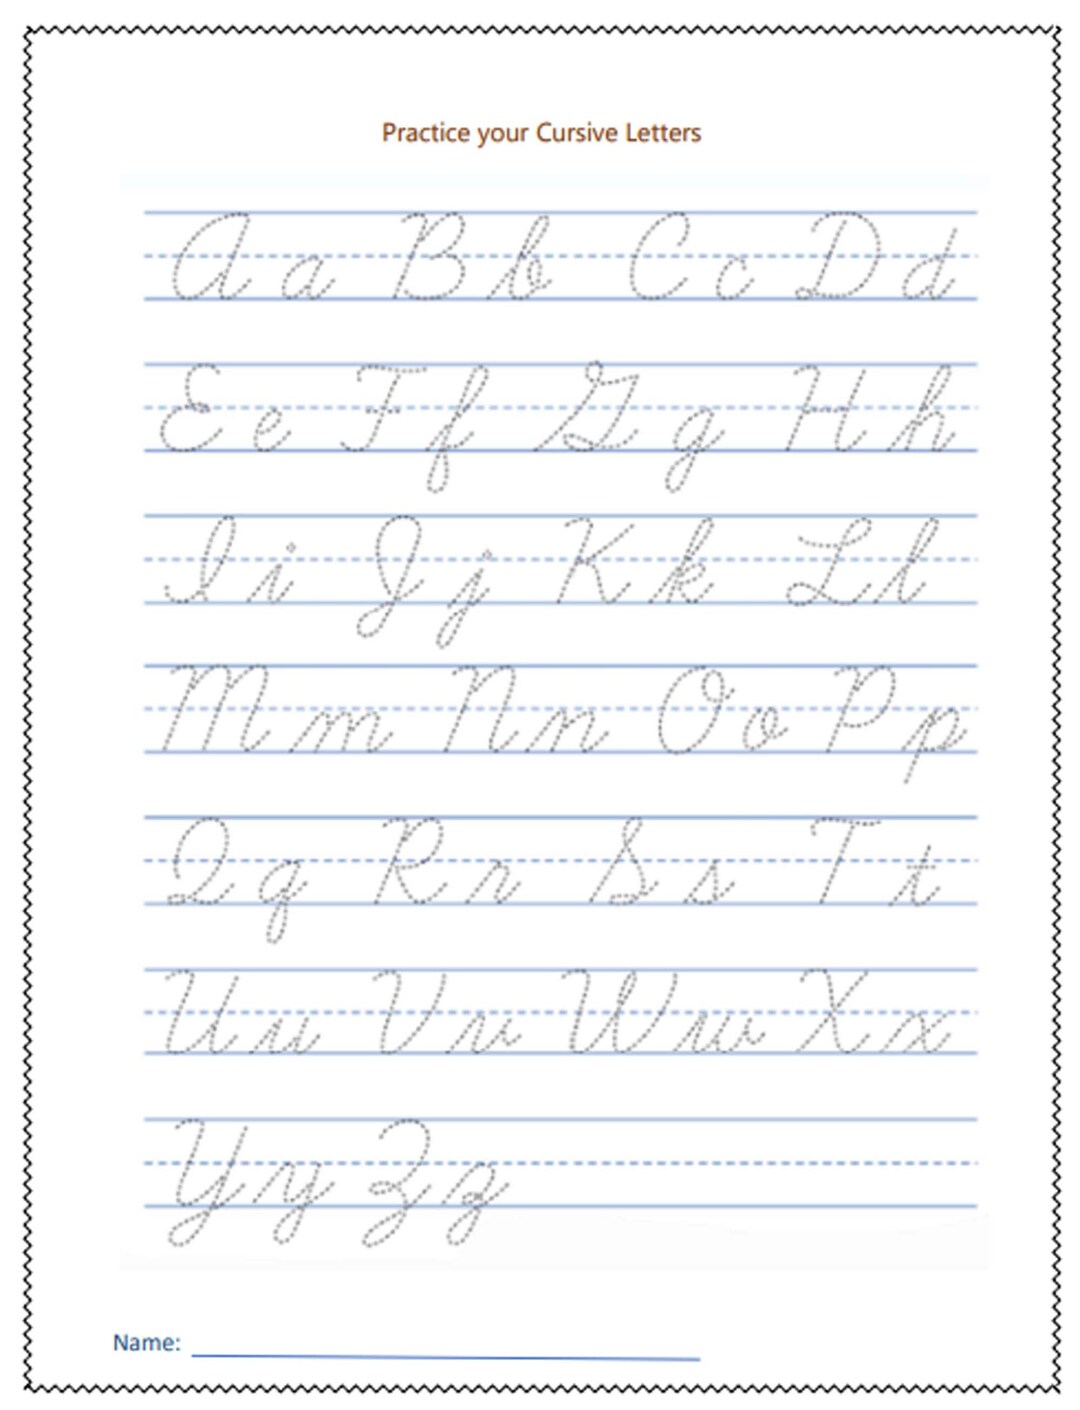 Practice your Cursive Letters
A a B b C c D d
E e F f G g H h
I i J j K k L l
M m N n O o P p
Q q R r S s T t
U u V v W w X x
Y y Z z
Name: